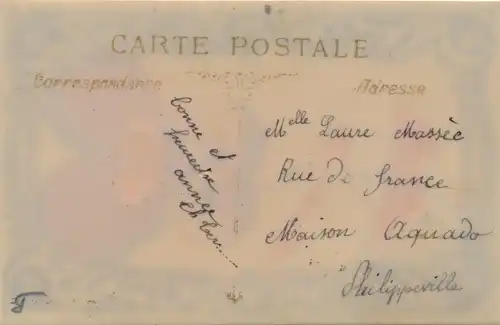 CARTE POSTALE
Correspondance
Adresse
bonne et
heureuse
année
Melle Laure Masséc
Rue de france
Maison Aguado
Philippeville